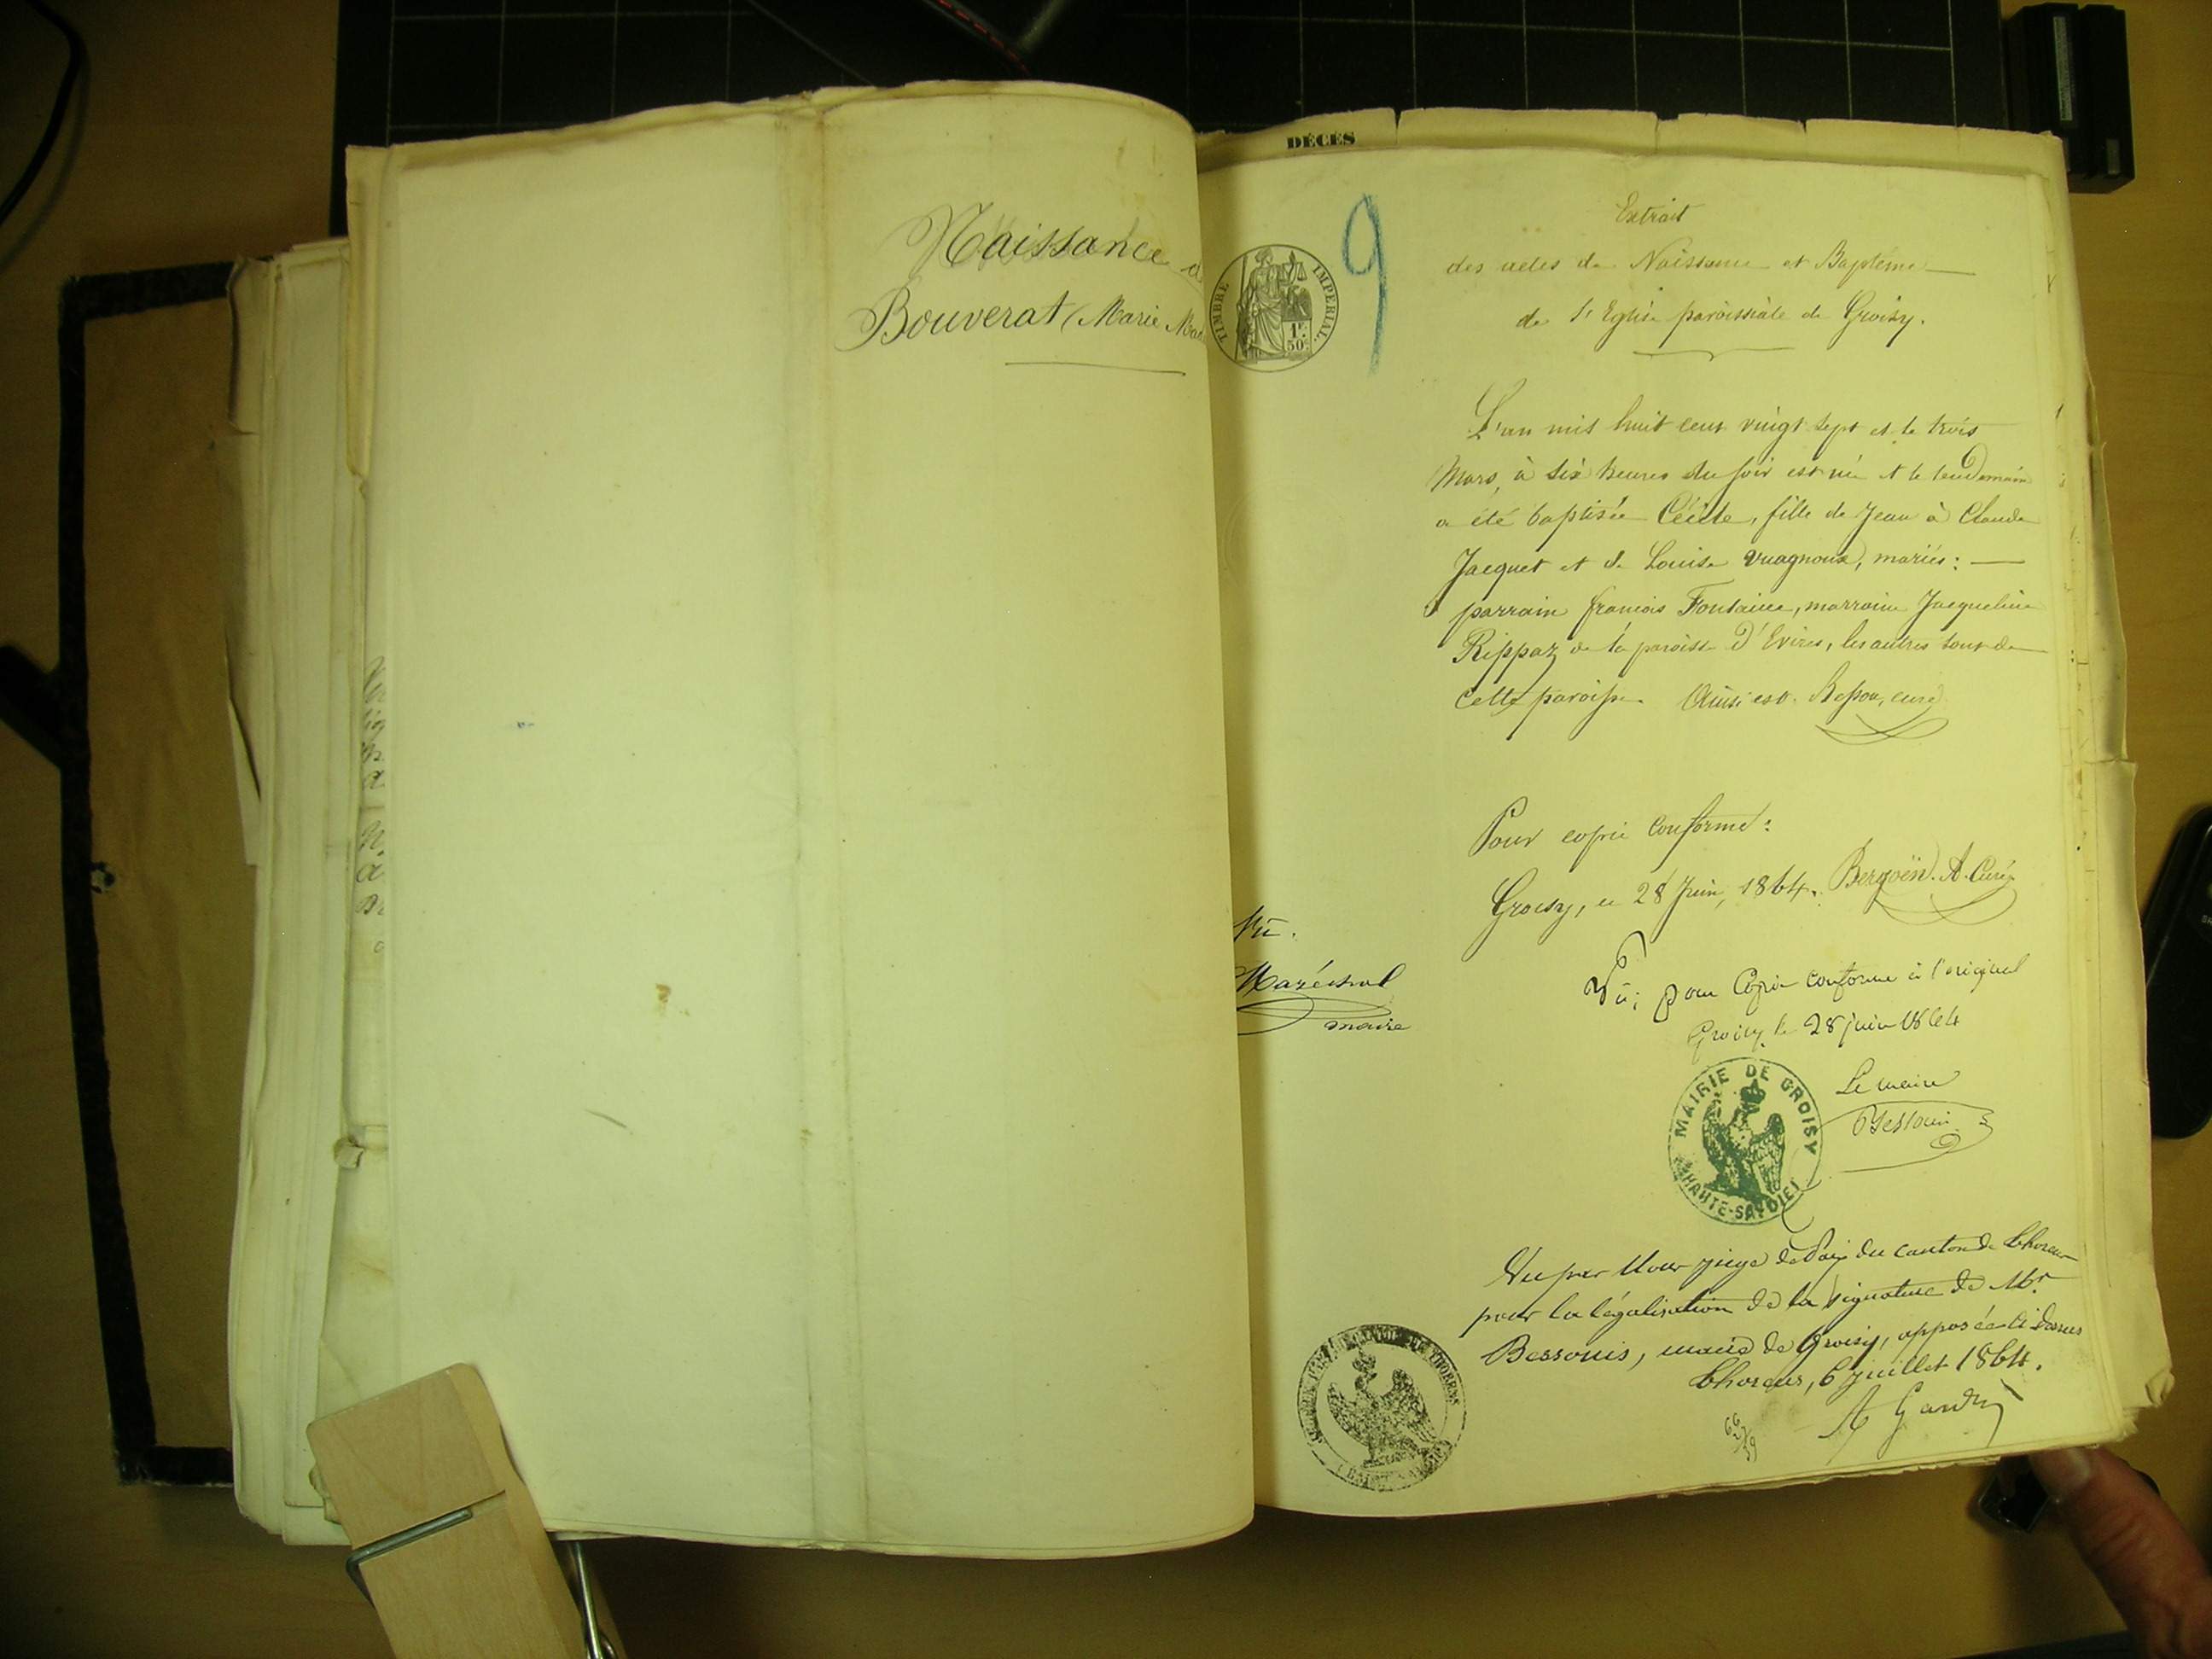 Naissance
Bouverat (Marie
DÉCÈS
TIMBRE IMPERIAL
1F. 50c
9
Extrait
des actes de Naissance et Baptême
de l'Eglise paroissiale de Groisy.
L'an mil huit cent vingt sept et le trois
Mars, à six heures du soir est née et le lendemain
a été baptisée Cécile, fille de Jean à Claude
Jacquet et de Louise Vuagnoux, mariés:
parrain françois Fontaine, marraine Jacqueline
Rippaz de la paroisse d'Evires, les autres sont de
cette paroisse. Ainsi est. Besson, curé
Pour copie conforme:
Groisy, le 28 Juin, 1864. Bergoën. A. Curé
Vu.
Maréchal
maire
Vu; pour Copie conforme à l'original
Groisy le 28 juin 1864
Le maire
Bessonis
MAIRIE DE GROISY
HAUTE-SAVOIE
Vu par Nous juge de Paix du canton de Thorens
pour la légalisation de la signature de Mr.
Bessonis, maire de Groisy, apposée ci-dessus
Thorens, 6 juillet 1864.